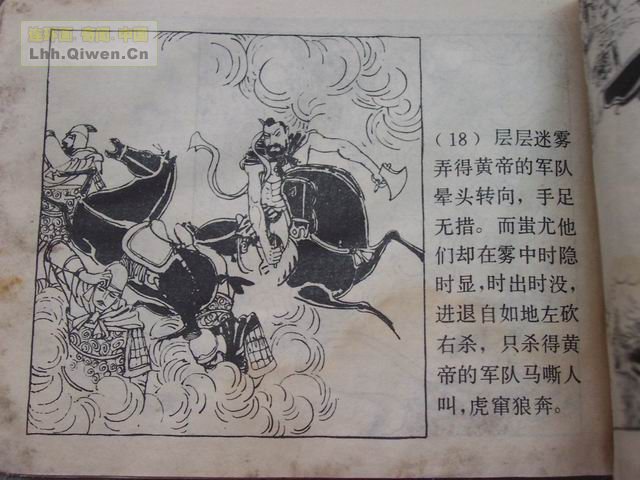 连环画.奇闻.中国
Lhh.Qiwen.Cn
(18) 层层迷雾
弄得黄帝的军队
晕头转向，手足
无措。而蚩尤他
们却在雾中时隐
时显，时出时没，
进退自如地左砍
右杀，只杀得黄
帝的军队马嘶人
叫，虎窜狼奔。